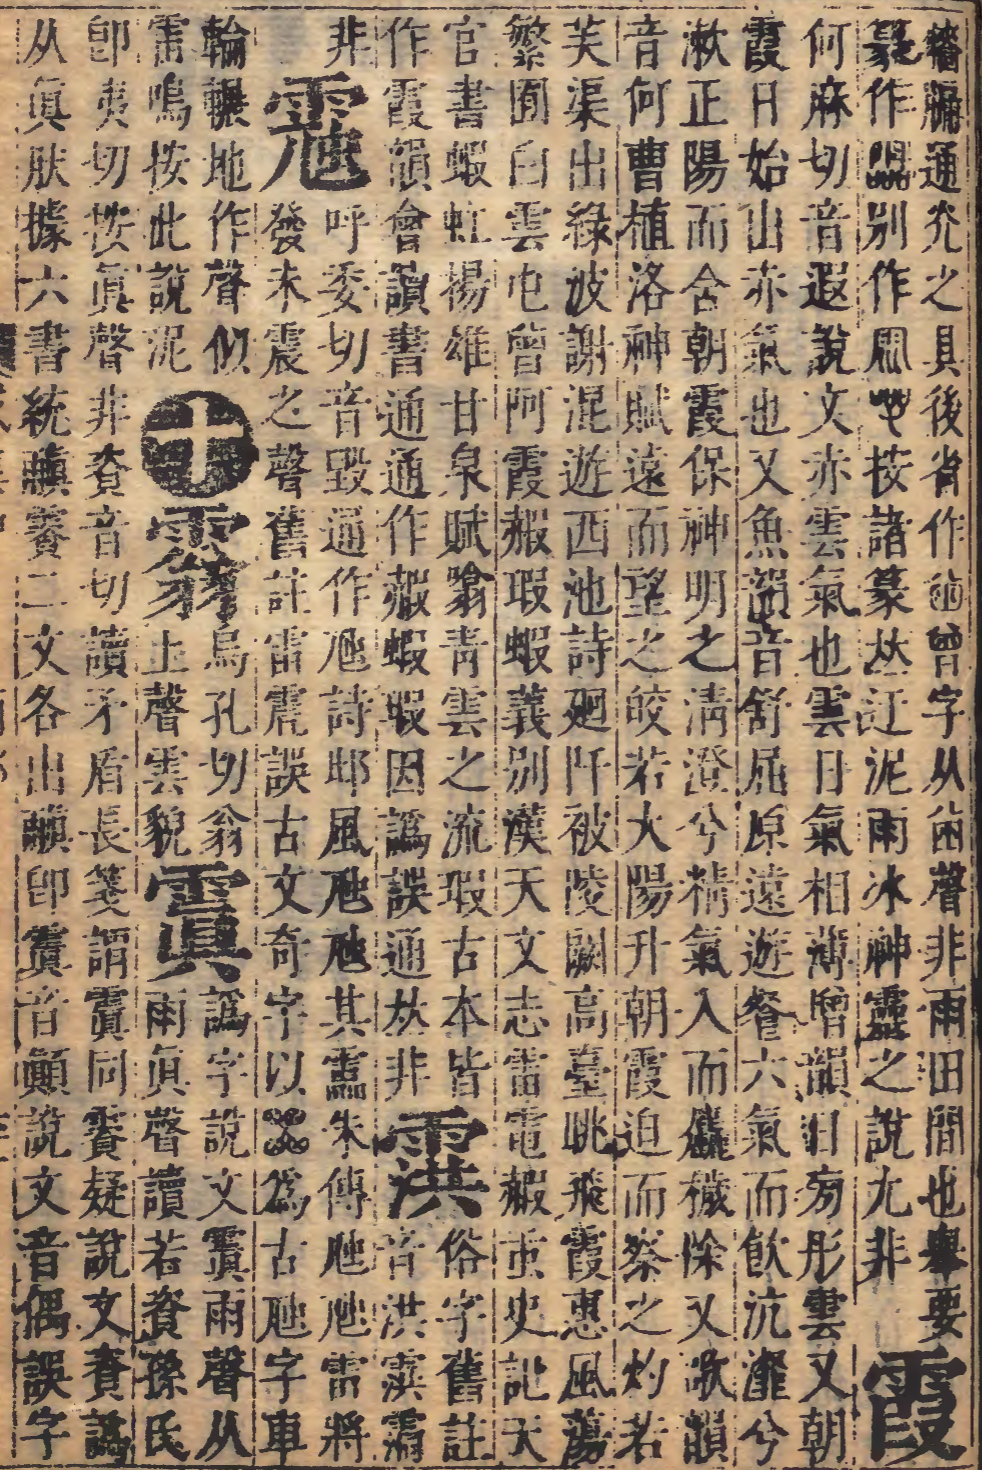 漏通穴之具後省作曾字从囪聲非雨田間也舉要
篆作別作按諸篆𠀤訌泥雨冰神靈之說尤非
霞
何麻切音遐說文赤雲氣也雲日氣相薄增韻日旁彤雲又朝
霞日始出赤氣也又魚韻音舒屈原遠遊餐六氣而飲沆瀣兮
漱正陽而含朝霞保神明之淸澄兮精氣入而麤穢除又歌韻
音何曹植洛神賦遠而望之皎若太陽升朝霞迫而察之灼若
芙渠出綠波謝混遊西池詩廻阡被陵闕高臺眺飛霞惠風蕩
繁囿白雲屯曾阿霞赮瑕蝦義別漢天文志雷電赮䖝史記天
官書蝦虹揚雄甘泉賦噏靑雲之流瑕古本皆
作霞韻會讀書通通作赮蝦瑕因譌誤通𠀤非
霟
俗字舊註
音洪霟霘
非
䨠
呼委切音毀通作虺詩邶風虺虺其靁朱傳虺虺雷將
發未震之聲舊註雷震誤古文奇字以爲古虺字車
輪輾地作聲似
雷鳴按此說泥
䨴
烏孔切翁
上聲雲貌
䨯
譌字說文䨯雨聲从
雨眞聲讀若資孫氏
卽夷切按眞聲非資音切讀矛盾長箋謂䨯同疑說文資譌
从眞肤據六書統二文各出卽䨯音顚說文音偶誤字